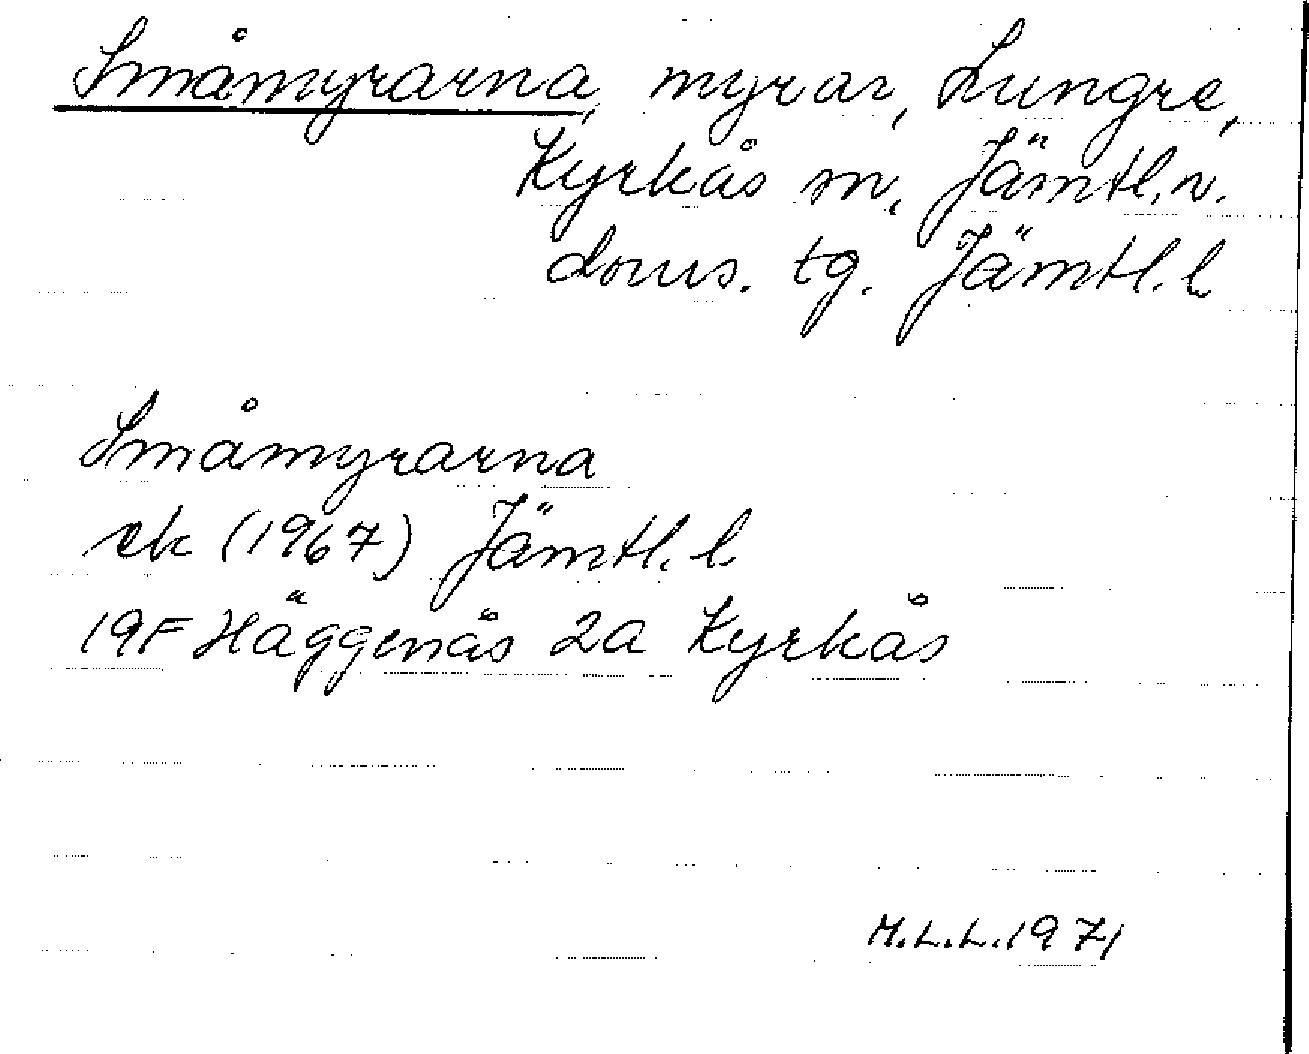 Småmyrarna, myrar, Lungre,
Kyrkås sn, Jämtl.v.
doms. tg. Jämtl. l
Småmyrarna
ek (1967) Jämtl. l
19F Häggenås 2a Kyrkås
M.L.L. 1971